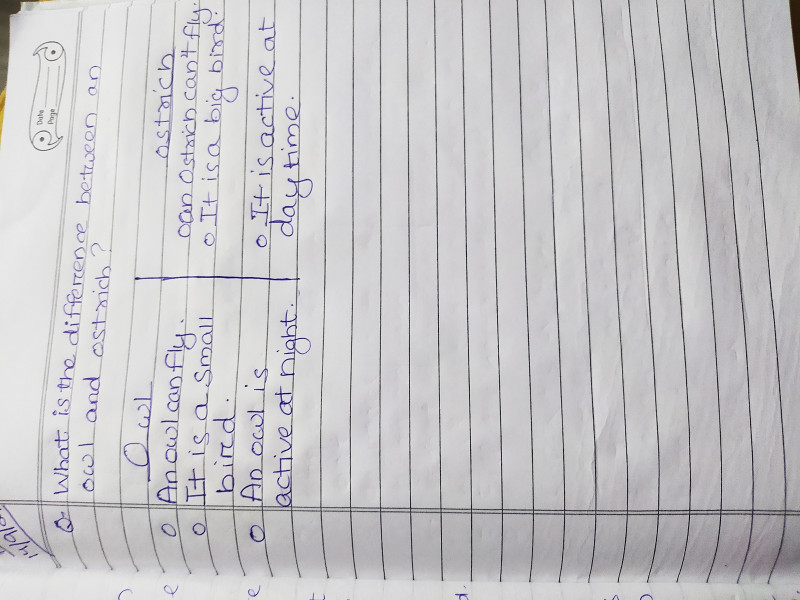 Date
Page
Q. What is the difference between an
owl and ostrich?
Owl
o An owl can fly.
o It is a small
bird.
o An owl is
active at night.
ostrich
o an ostrich can't fly.
o It is a big bird.
o It is active at
daytime.